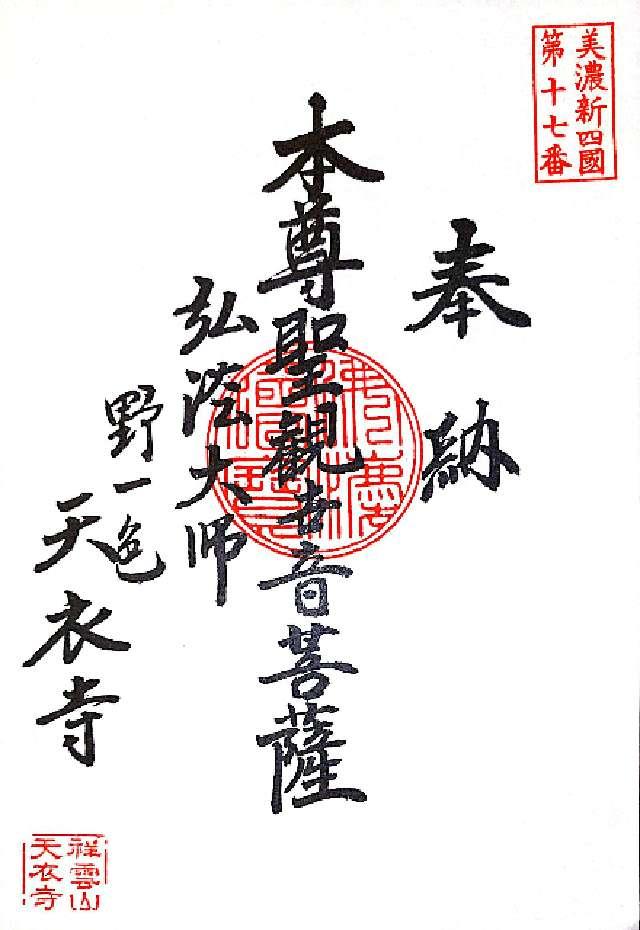 美濃新四國
第十七番
奉納
本尊聖觀世音菩薩
弘法大师
野一色
天衣寺
祥雲山
天衣寺